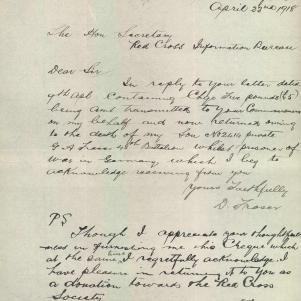 April 22nd 1918
The Hon Secretary
Red Cross Information Bureau
Dear Sir
In reply to your letter dated
9th Apl Containing Chqe Five pounds (£5)
being amt transmitted to your Commissioner
on my behalf and now returned owing
to the death of my Son No 2414 private
G A Fraser 48th Battalion whilst prisoner of
War in Germany which I beg to
acknowledge receiving from you
Yours Faithfully
D. Fraser
PS
Though I appreciate your thoughtful
ness in furnishing me this Cheque which
at the same time I regretfully acknowledge I
have pleasure in returning it to you as
a donation toward the Red Cross
Society